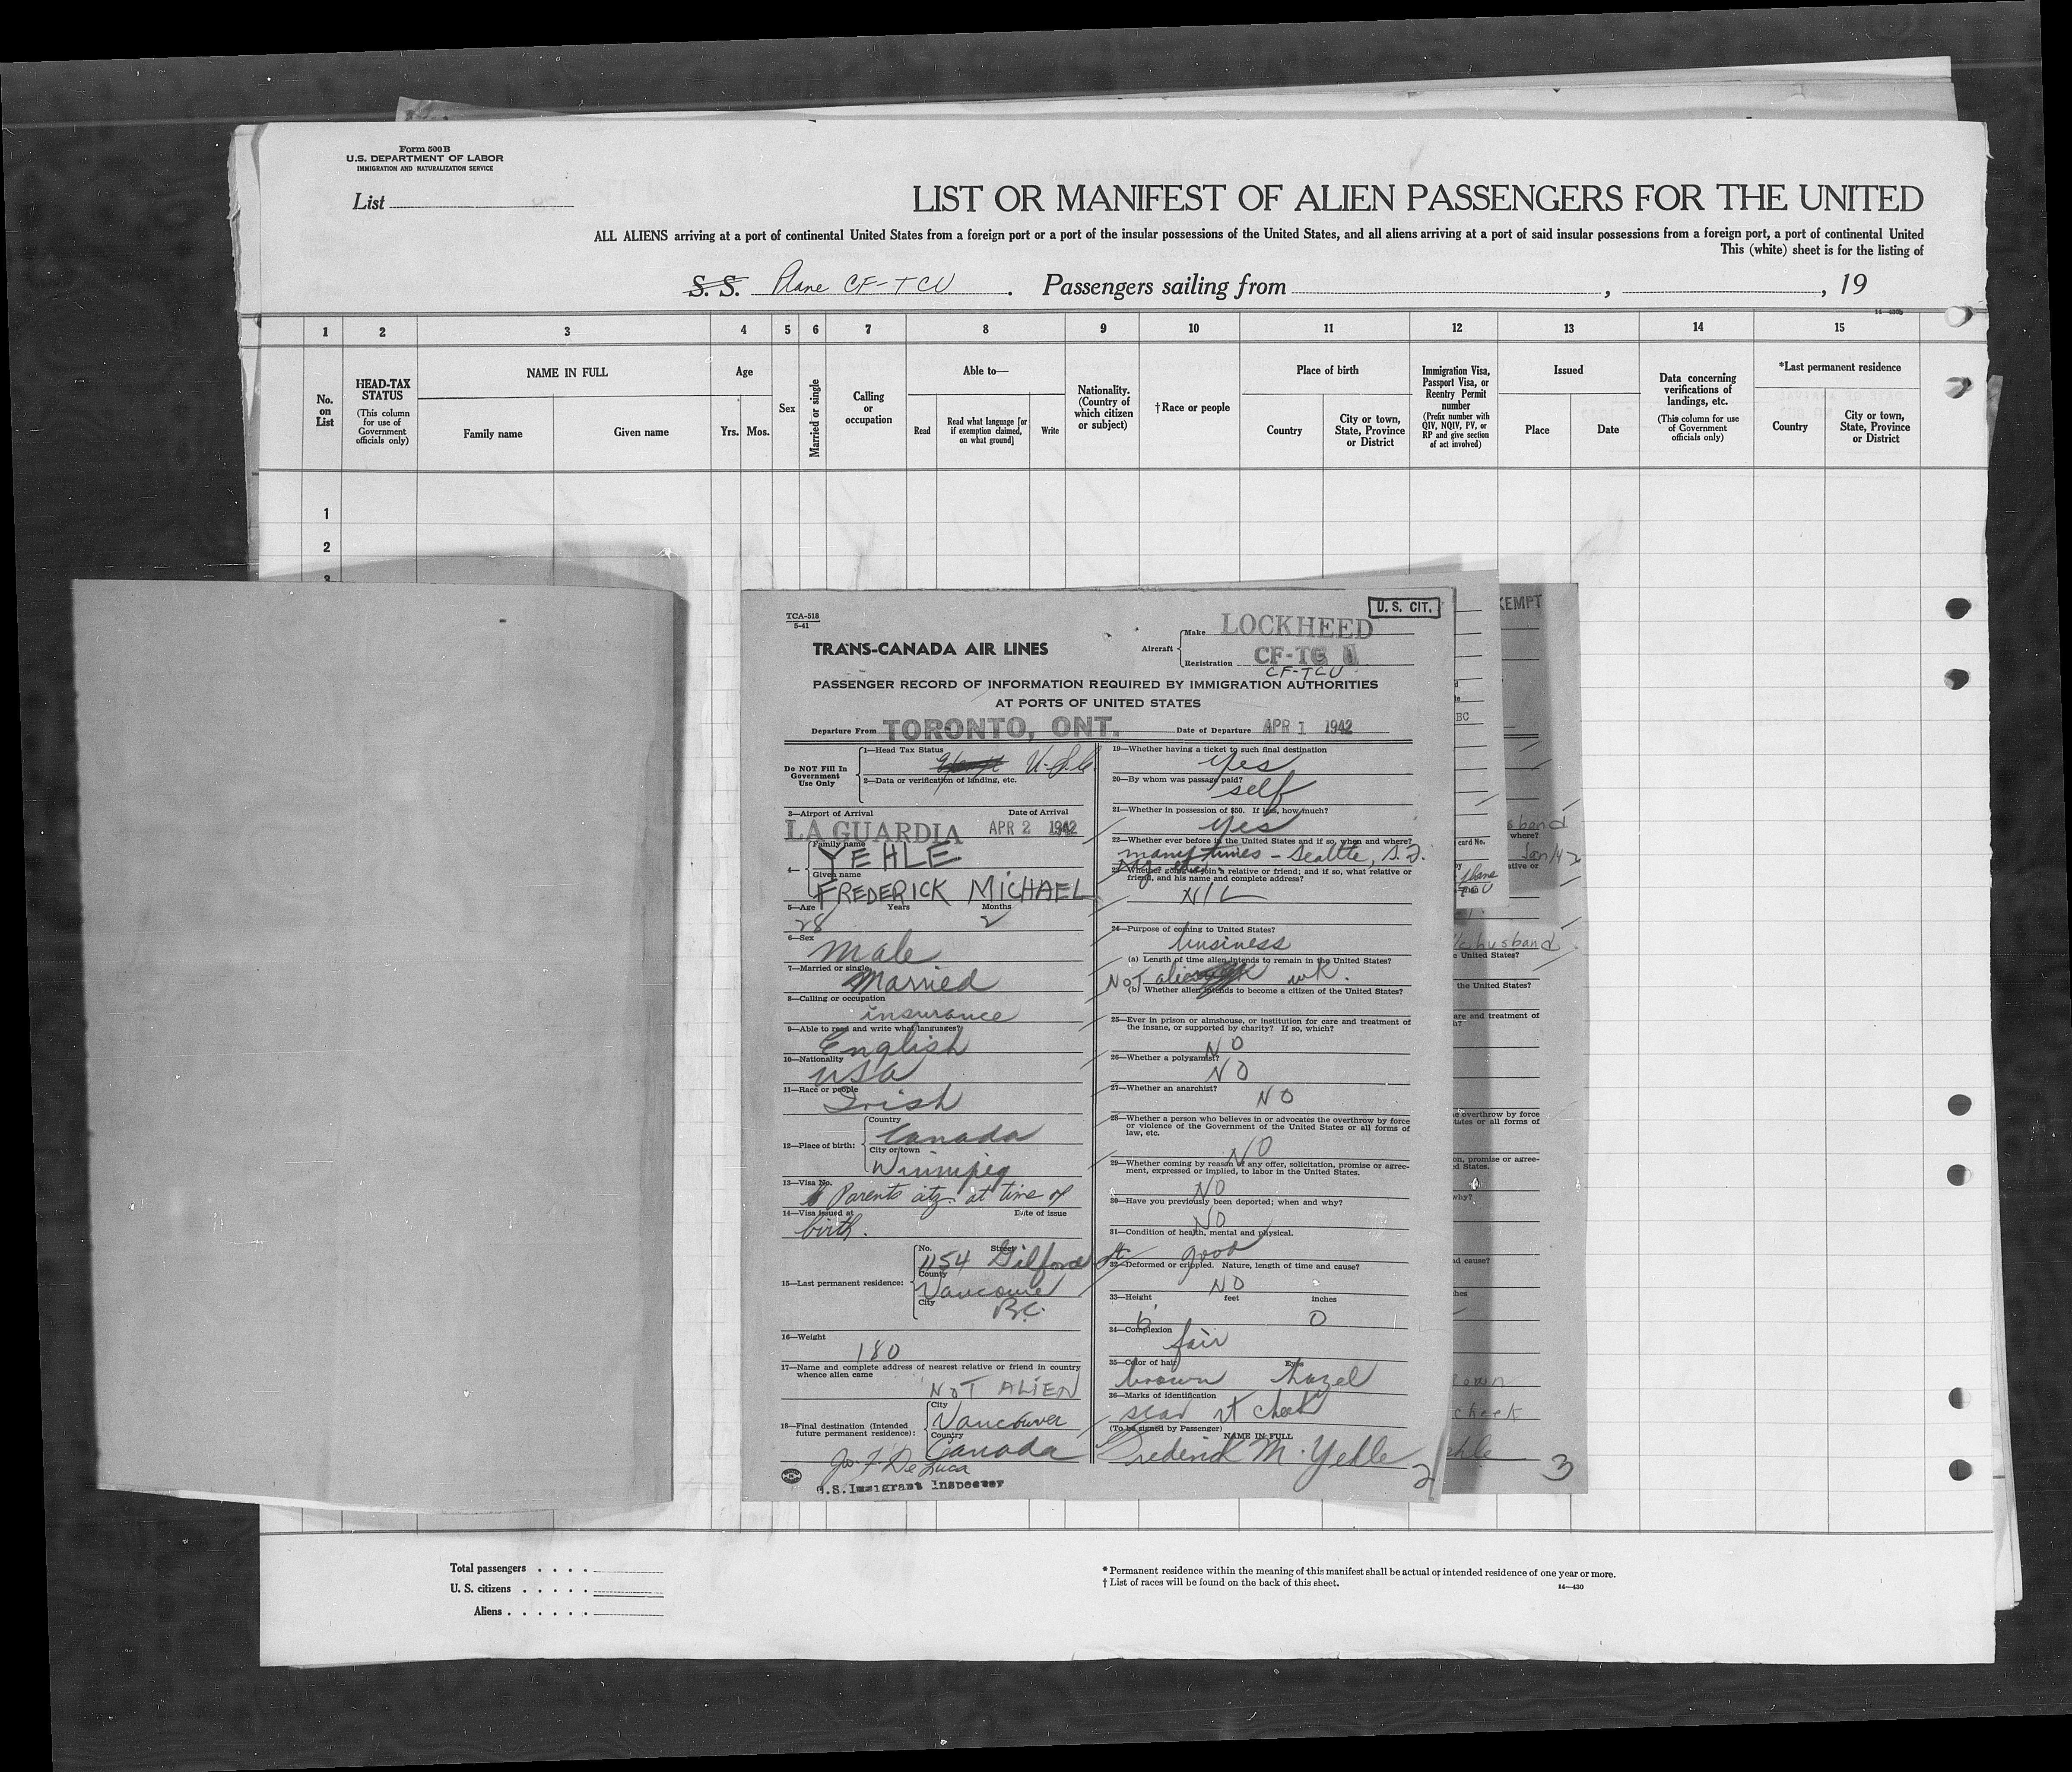 Form 500 B
U.S. DEPARTMENT OF LABOR
IMMIGRATION AND NATURALIZATION SERVICE
List
LIST OR MANIFEST OF ALIEN PASSENGERS FOR THE UNITED
ALL ALIENS arriving at a port of continental United States from a foreign port or a port of the insular possessions of the United States, and all aliens arriving at a port of said insular possessions from a foreign port, a port of continental United
This (white) sheet is for the listing of
S. S. Plane CF-TCU . Passengers sailing from , , 19
1 2 3 4 5 6 7 8 9 10 11 12 13 14 15
No. on List
HEAD-TAX STATUS
(This column for use of Government officials only)
NAME IN FULL
Family name
Given name
Age
Yrs. Mos.
Sex
Married or single
Calling or occupation
Able to—
Read
Read what language [or if exemption claimed, on what ground]
Write
Nationality. (Country of which citizen or subject)
†Race or people
Place of birth
Country
City or town, State, Province or District
Immigration Visa, Passport Visa, or Reentry Permit number
(Prefix number with QIV, NQIV, PV, or RP and give section of act involved)
Issued
Place
Date
Data concerning verifications of landings, etc.
(This column for use of Government officials only)
*Last permanent residence
Country
City or town, State, Province or District
1
2
3
TCA-518
5-41
U. S. CIT.
TRANS-CANADA AIR LINES
Aircraft
Make LOCKHEED
Registration CF-TC
CF-TCU
PASSENGER RECORD OF INFORMATION REQUIRED BY IMMIGRATION AUTHORITIES
AT PORTS OF UNITED STATES
Departure From TORONTO, ONT. Date of Departure APR 1 1942
Do NOT Fill In Government Use Only
1—Head Tax Status U.S.C.
2—Data or verification of landing, etc.
3—Airport of Arrival Date of Arrival
LA GUARDIA APR 2 1942
4—
Family name
YEHLE
Given name
FREDERICK MICHAEL
5—Age Years Months
28 2
6—Sex
male
7—Married or single
Married
8—Calling or occupation
insurance
9—Able to read and write what languages?
English
10—Nationality
USA
11—Race or people
Irish
12—Place of birth:
Country
Canada
City or town
Winnipeg
13—Visa No.
Parents citz. at time of
14—Visa issued at Date of issue
birth.
15—Last permanent residence:
No. Street
1154 Gilford St.
County
Vancouver
City
B.C.
16—Weight
180
17—Name and complete address of nearest relative or friend in country whence alien came
NOT ALIEN
18—Final destination (Intended future permanent residence):
City
Vancouver
Country
Canada
Jos. F. De Luca
U.S. Immigrant Inspector
19—Whether having a ticket to such final destination
yes
20—By whom was passage paid?
self
21—Whether in possession of $50. If less, how much?
yes
22—Whether ever before in the United States and if so, when and where?
many times - Seattle, S.F.
23—Whether going to join a relative or friend; and if so, what relative or friend, and his name and complete address?
NIL
24—Purpose of coming to United States?
business
(a) Length of time alien intends to remain in the United States?
NOT alien wk.
(b) Whether alien intends to become a citizen of the United States?
25—Ever in prison or almshouse, or institution for care and treatment of the insane, or supported by charity? If so, which?
NO
26—Whether a polygamist?
NO
27—Whether an anarchist?
NO
28—Whether a person who believes in or advocates the overthrow by force or violence of the Government of the United States or all forms of law, etc.
NO
29—Whether coming by reason of any offer, solicitation, promise or agreement, expressed or implied, to labor in the United States.
NO
30—Have you previously been deported; when and why?
NO
31—Condition of health, mental and physical.
good
32—Deformed or crippled. Nature, length of time and cause?
NO
33—Height feet inches
6 0
34—Complexion
fair
35—Color of hair Eyes
brown hazel
36—Marks of identification
scar rt cheek
(To be signed by Passenger) NAME IN FULL
Frederick M. Yehle
2
BC
card No.
where?
Jan/42
husband
e United States?
the United States?
are and treatment of
e overthrow by force
on, promise or agree-
d States.
why?
nd cause?
cheek
3
Total passengers
U. S. citizens
Aliens
* Permanent residence within the meaning of this manifest shall be actual or intended residence of one year or more.
† List of races will be found on the back of this sheet.
14—430